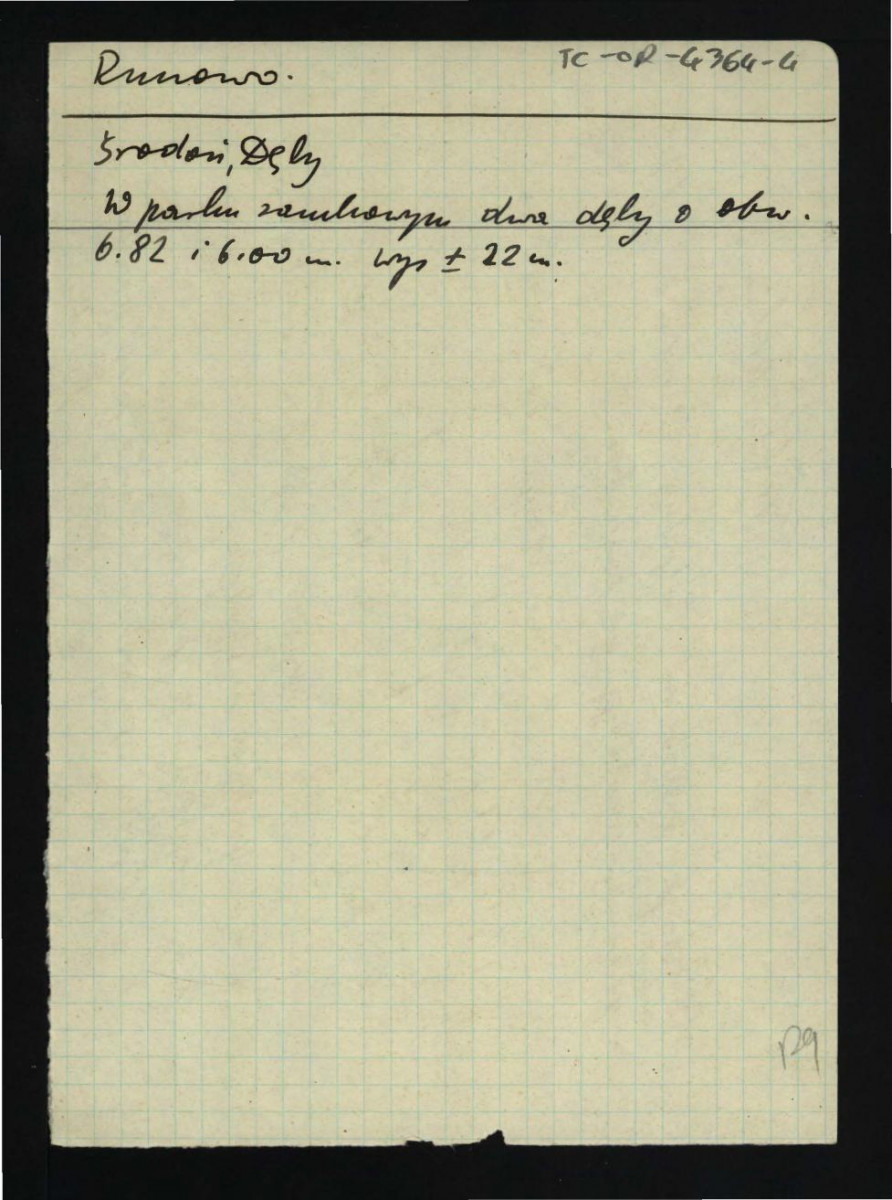 Runowo.
TC-OR-4364-4
Środoń, Dęby
W parku zamkowym dwa dęby o obw.
6.82 i 6.00 m. wys ± 22 m.
129